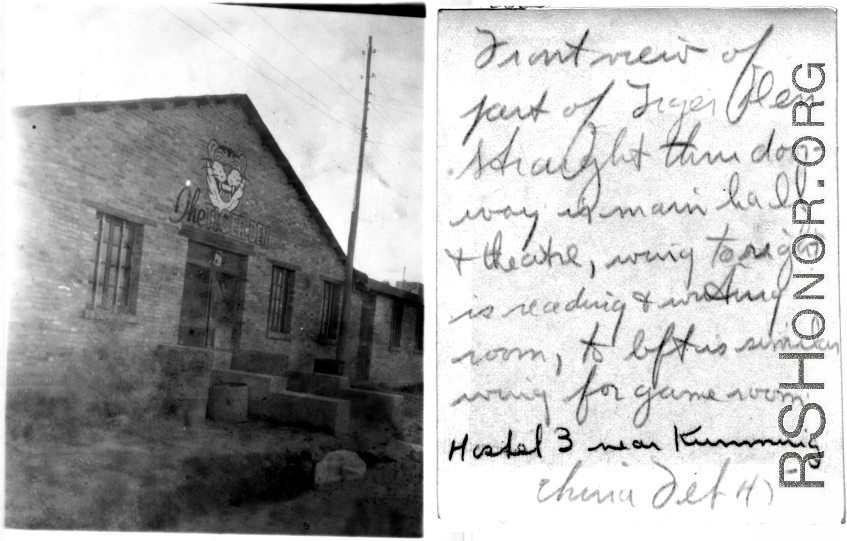 The TIGER DEN
Front view of
part of Tiger Den
straight thru door-
way is main hall
& theatre, wing to right
is reading & writing
room, to left is similar
wing for game room.
Hostel 3 near Kunming
China Feb 4
RSHONOR.ORG